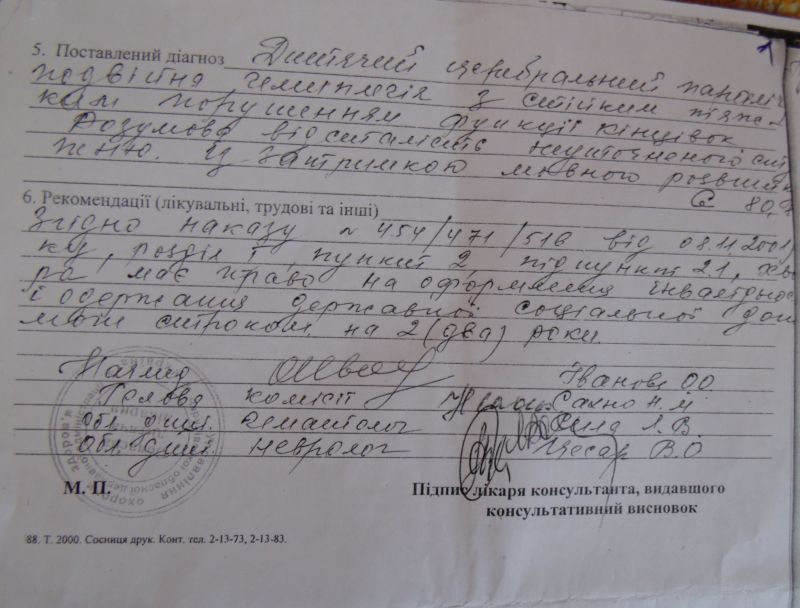 5. Поставлений діагноз Дитячий церебральний параліч
подвійна геміплегія з стійким тяж-
ким порушенням функції кінцівок
Розумова відсталість неуточненого сту
пеню. Із затримкою мовного розвитку
G 80,8
6. Рекомендації (лікувальні, трудові та інші)
Згідно наказу № 454/471/516 від 08.11.2001
ку, розділ I, пункт 2, підпункт 2.1, хво
ра має право на оформлення інвалідно
і одержання державної соціальної допо
моги строком на 2 (два) роки.
Іванова ОО
Голова комісії Сахно Н.М
Обл. дит. Л.В.
Обл. дит. невролог Цесар В.О
М. П. Підпис лікаря консультанта, видавшого
консультативний висновок
88. Т. 2000. Сосниця друк. Конт. тел. 2-13-73, 2-13-83.